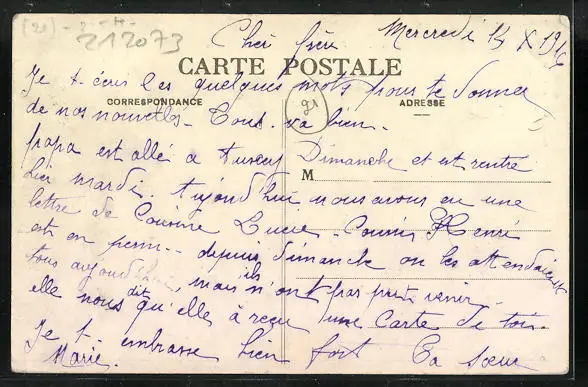 212073
Mercredi 13 X 1916
Cher frère
CARTE POSTALE
Je t. écris les quelques mots pour te donner
CORRESPONDANCE
ADRESSE
de nos nouvelles. Tout va bien.
papa est allé à Dimanche et est rentré
M
hier mardi. Aujourd'hui nous avons eu une
lettre de Cousine Lucie. Cousin Henri
est en perm.. depuis dimanche on les attendaient
tous aujourd'hui, mais ils n'ont pas put venir.
elle nous dit qu'elle à reçu une Carte de toi.
Je t. embrasse bien fort Ta sœur
Marie.